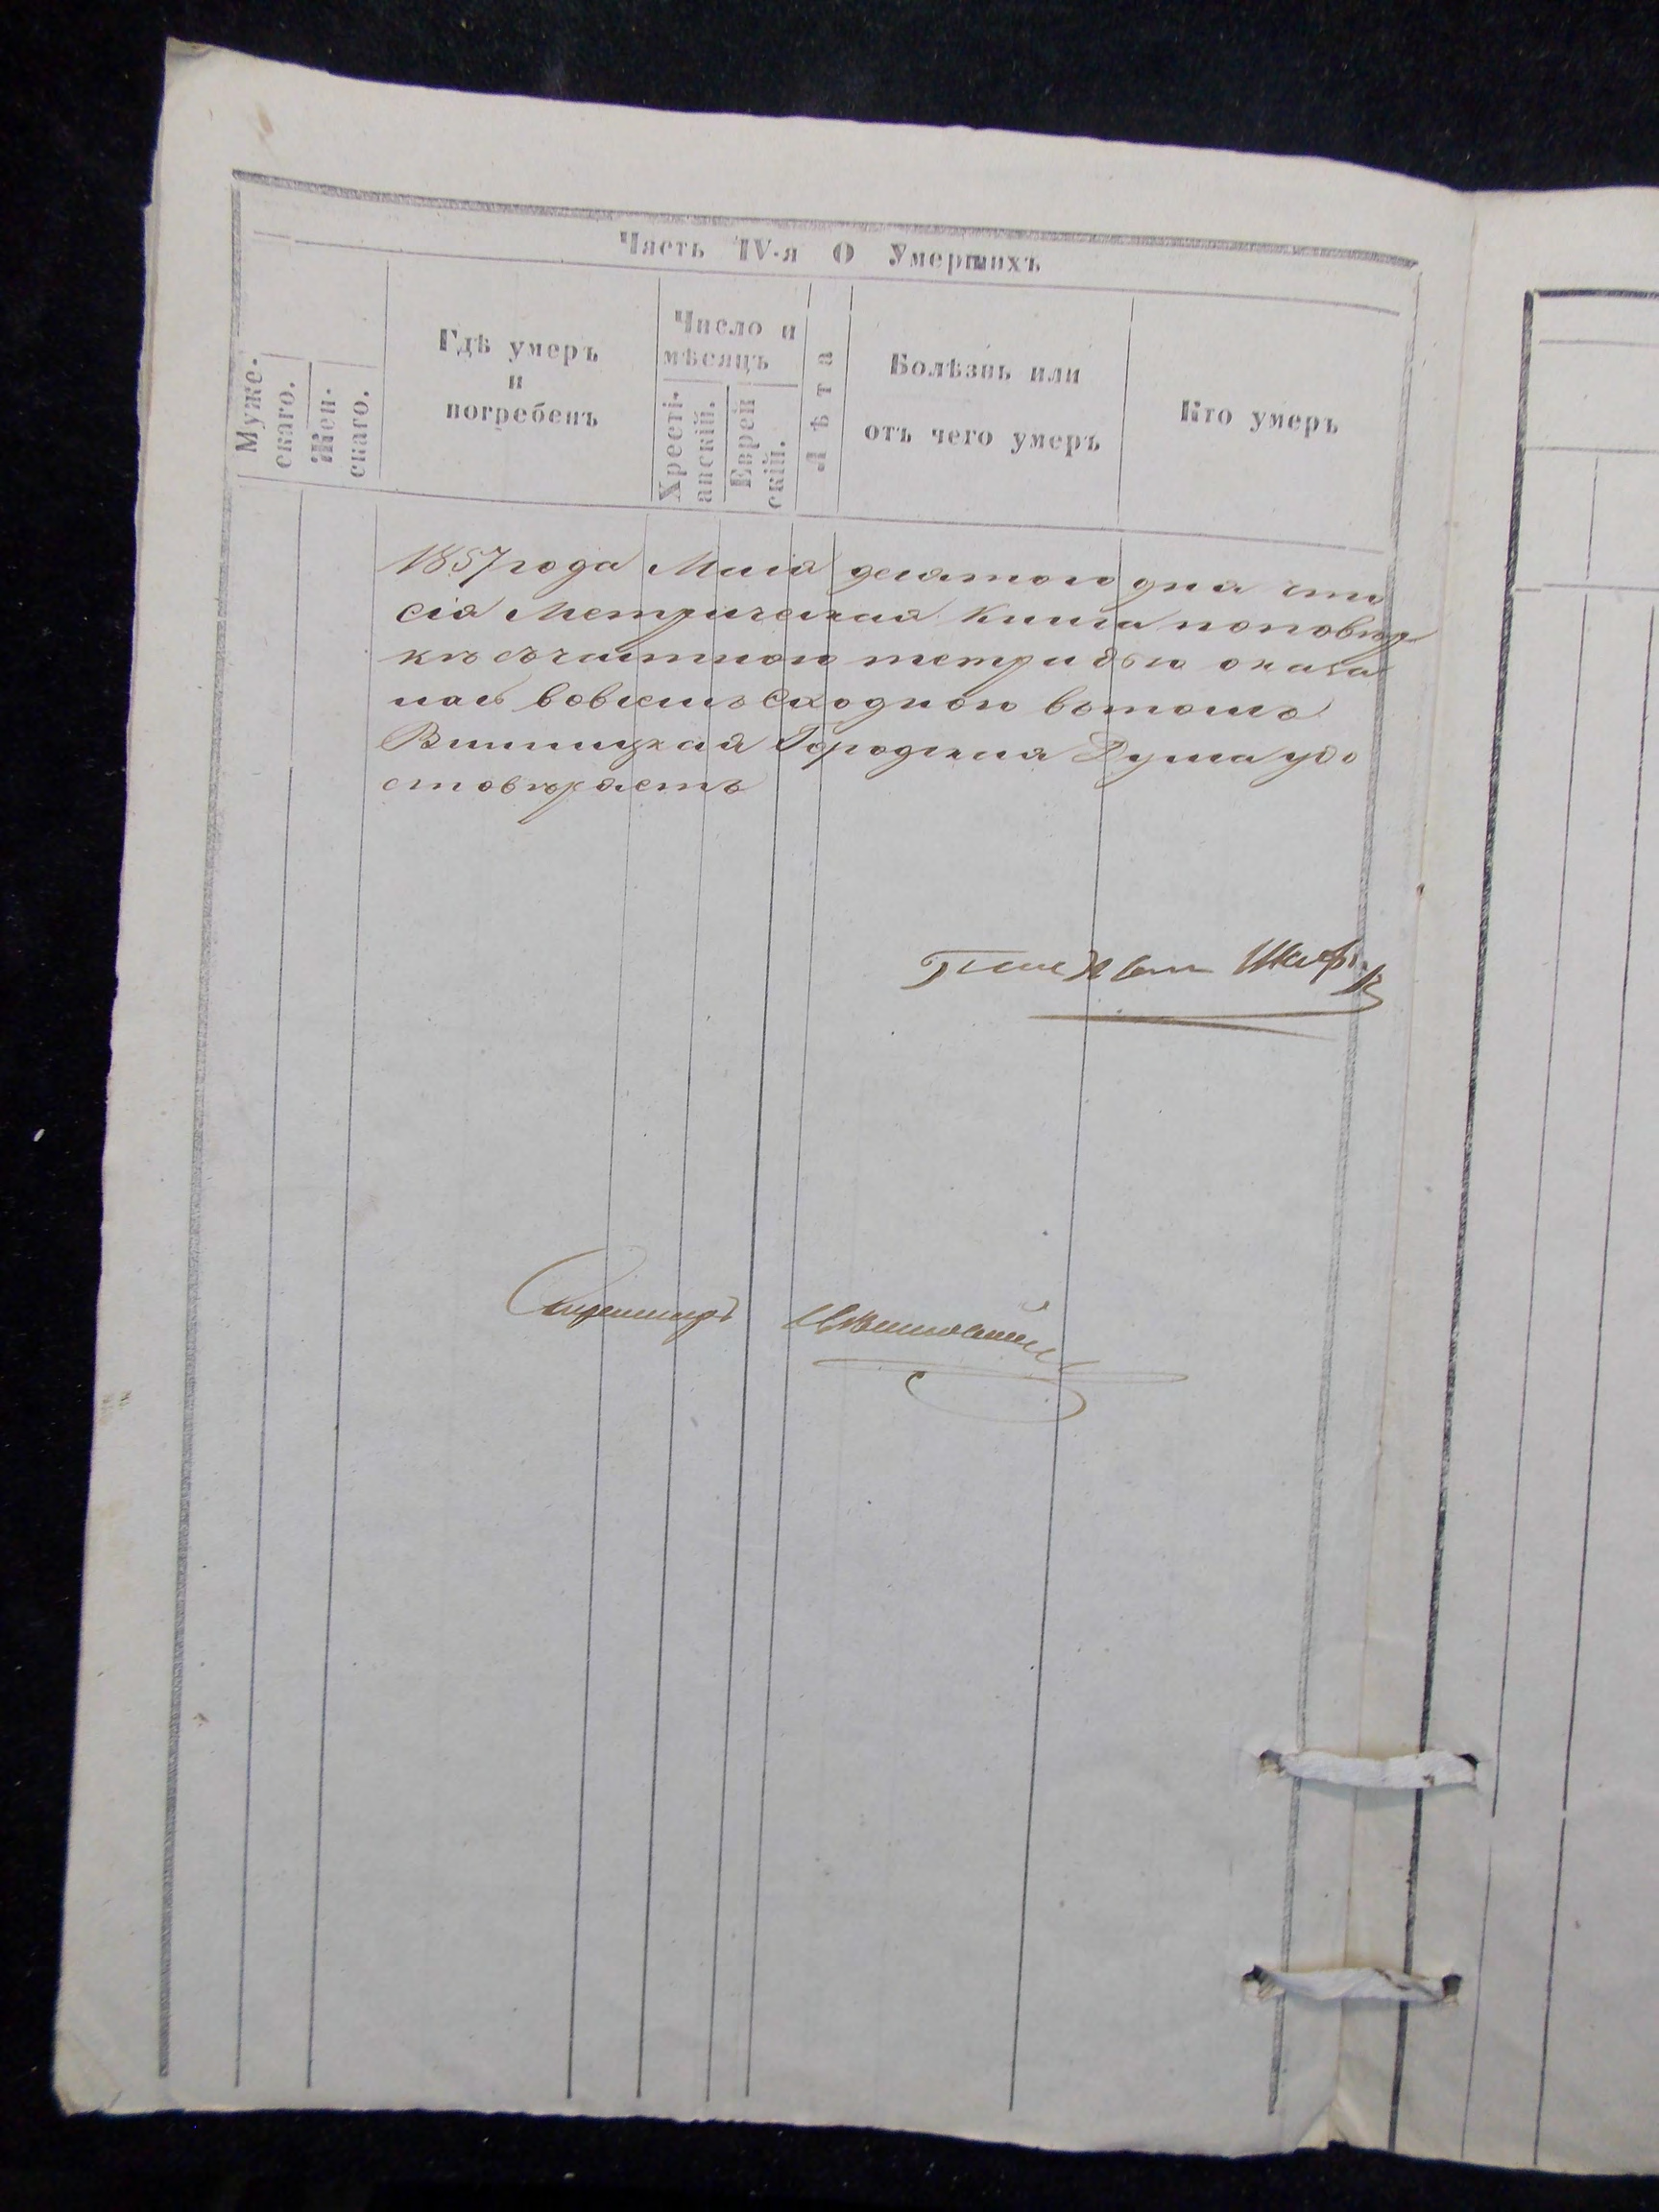 Часть IV-я О Умершихъ
Муже-
скаго.
Жен-
скаго.
Гдѣ умеръ
и
погребенъ
Число и
мѣсяцъ
Хресті-
анскій.
Еврей
скій.
Лѣта
Болѣзнь или
отъ чего умеръ
Кто умеръ
1857 года Маія десятого дня что
сія Метрическая Книга поповѣр
къ съчистною тетридью оказа
лась вовсемъ сходною вътомъ
Винницкая Городская Дума удо
стовѣряетъ